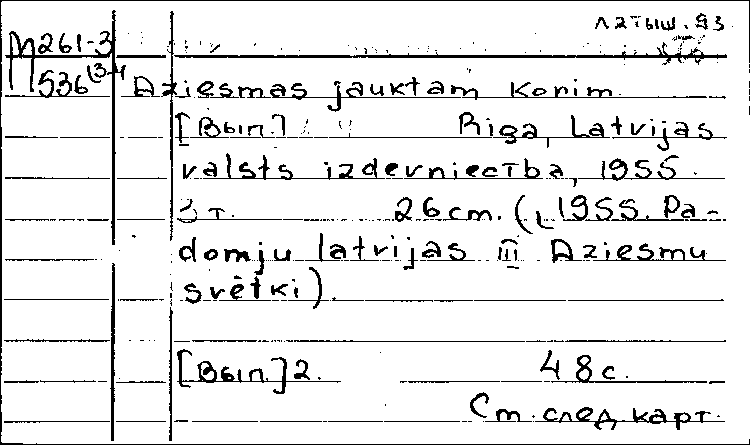 латыш. яз
М261-3
536(3-4
Dziesmas jauktam korim
[Вып.] Riga, Latvijas
valsts izdevniecība, 1955.
3 т. 26 cm. (1955. Pa-
domju latvijas III Dziesmu
svētki).
[Вып.] 2. 48 с.
См. след. карт.